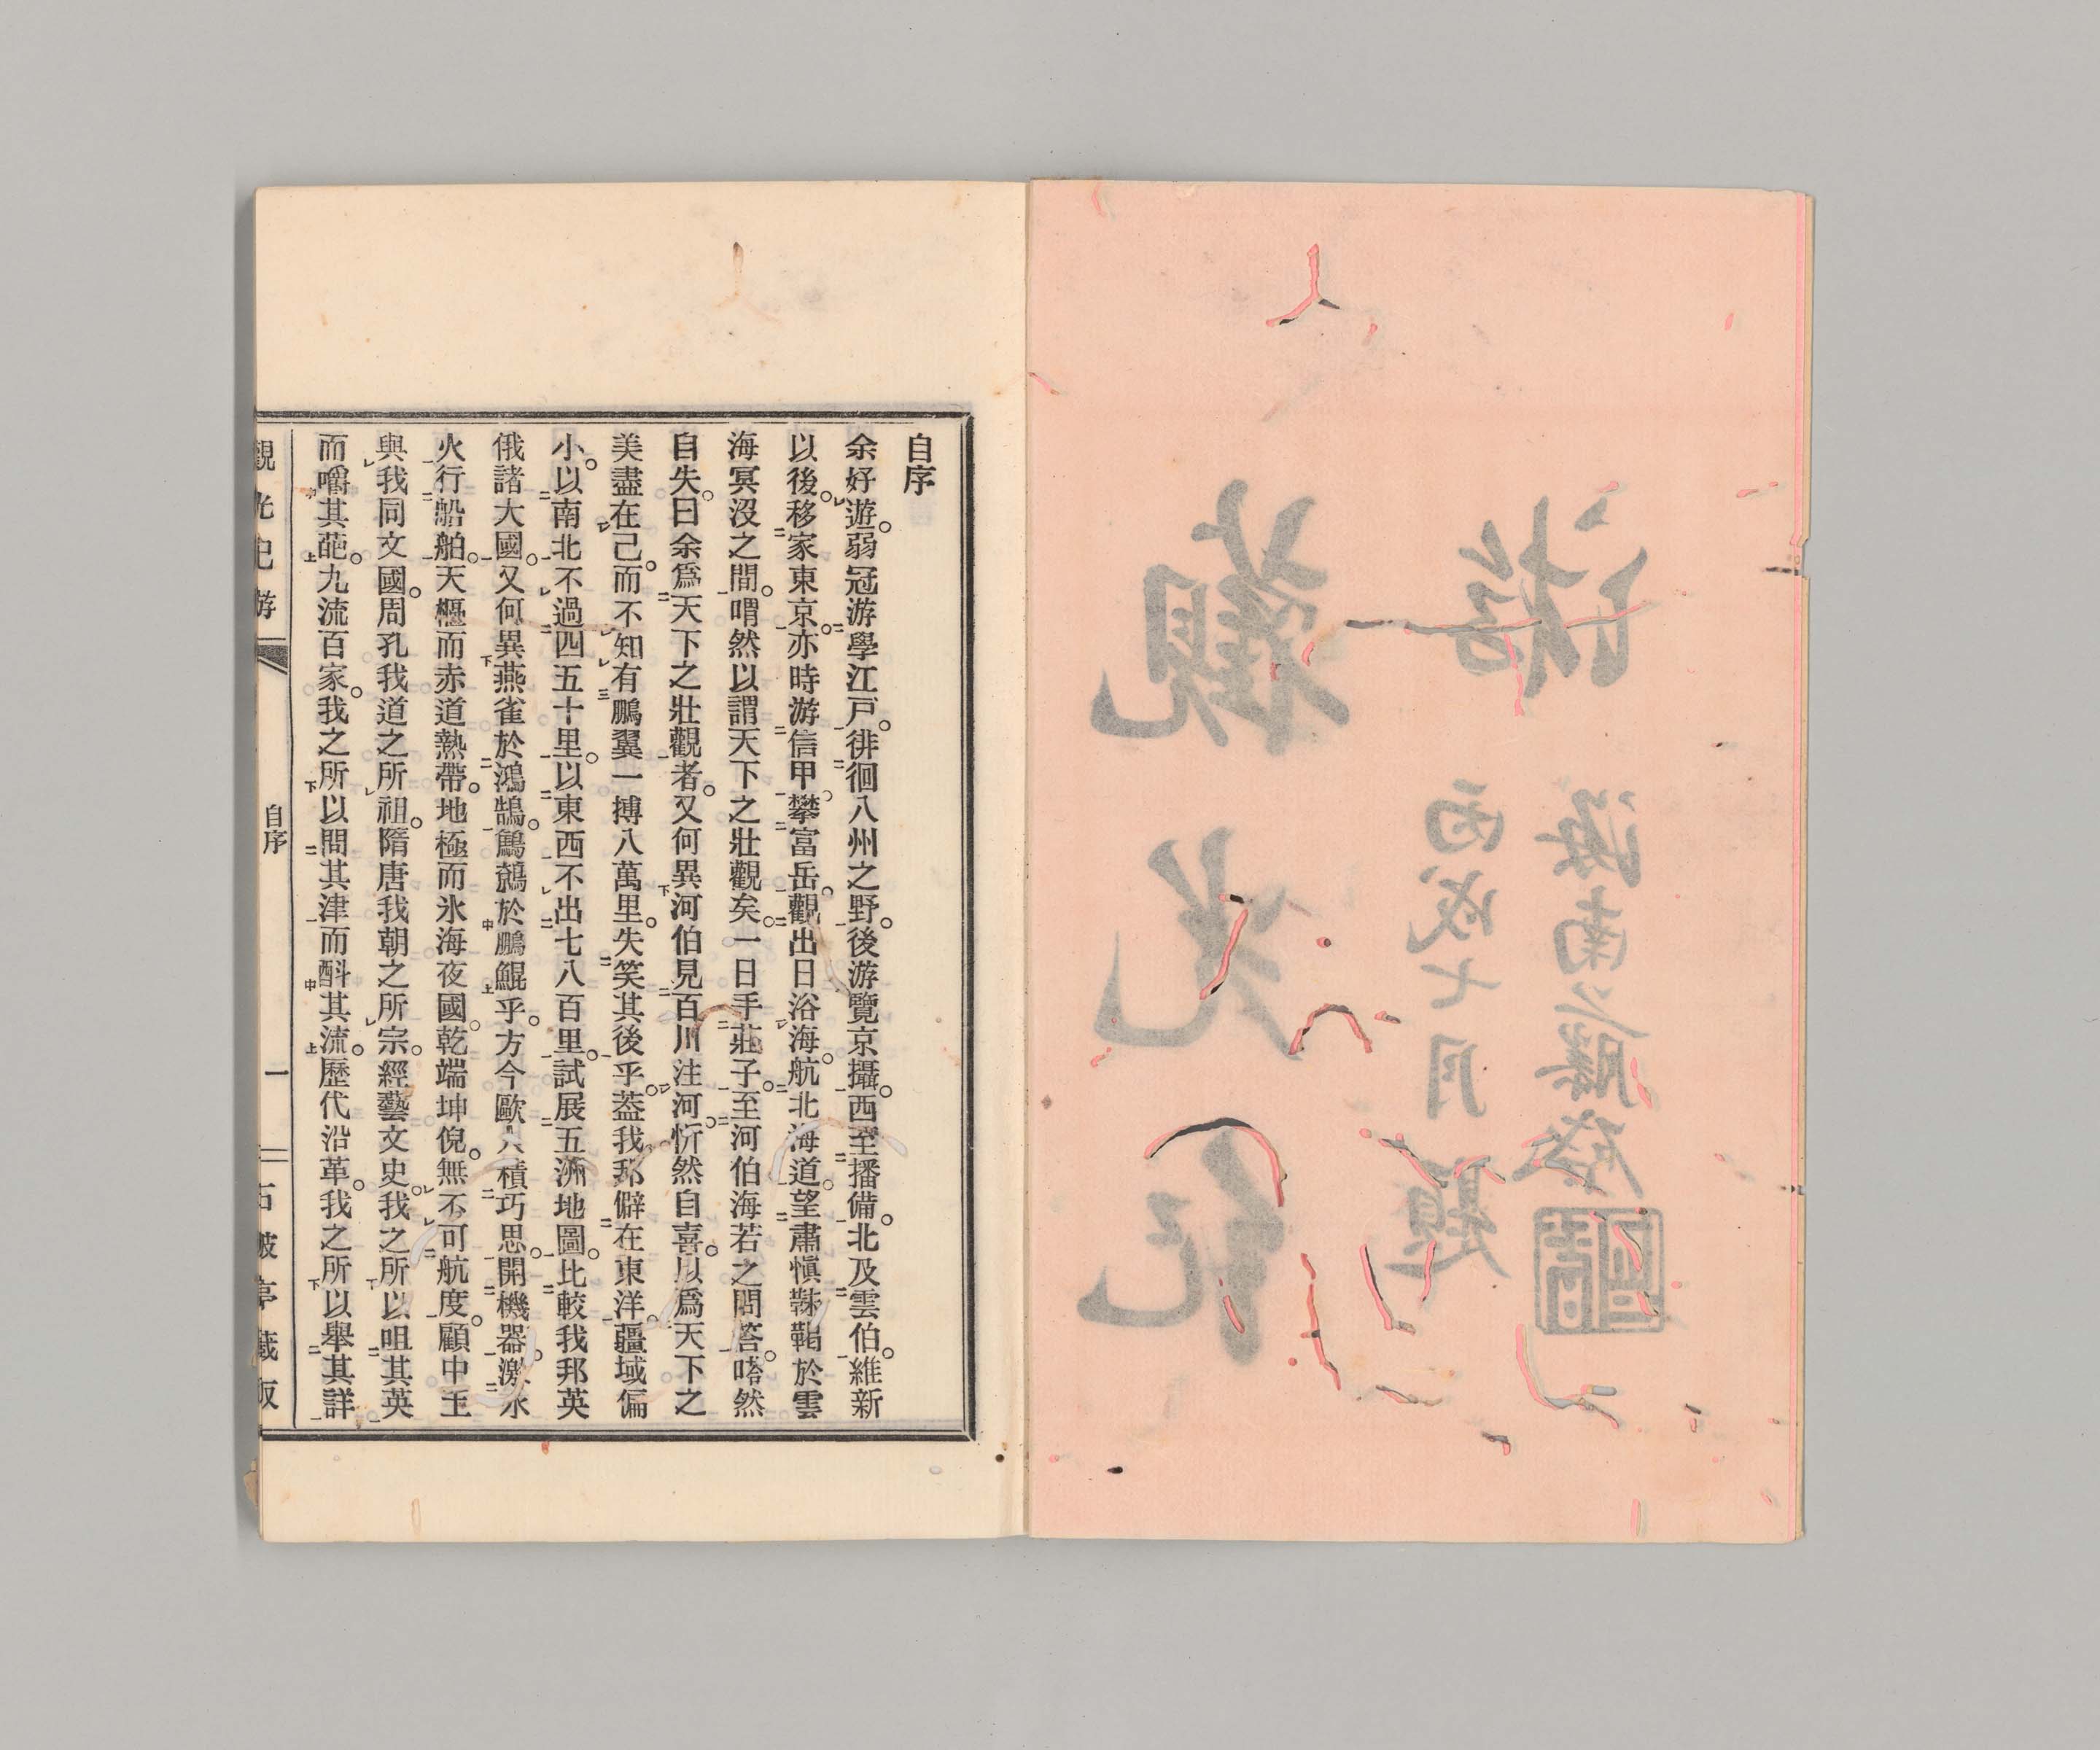 觀光紀
游
丙戌七月題
海南
自序
余好遊。弱冠游學江戶。徘徊八州之野。後游覽京攝。西至播備。北及雲伯。維新
以後。移家東京。亦時游信甲。攀富岳。觀出日浴海。航北海道。望肅愼靺鞨於雲
海冥沒之間。喟然以謂天下之壯觀矣。一日手莊子。至河伯海若之問答。嗒然
自失。曰余爲天下之壯觀者。又何異河伯見百川注河。忻然自喜。以爲天下之
美盡在己。而不知有鵬翼一搏八萬里。失笑其後乎。蓋我邦僻在東洋。疆域偏
小。以南北不過四五十里。以東西不出七八百里。試展五洲地圖。比較我邦英
俄諸大國。又何異燕雀於鴻鵠。鷦鷯於鵬鯤乎。方今歐人積巧思。開機器。激水
火行船舶。天樞而赤道熱帶。地極而氷海夜國。乾端坤倪。無不可航度。顧中土
與我同文國。周孔我道之所祖。隋唐我朝之所宗。經藝文史。我之所以咀其英
而嚼其葩。九流百家。我之所以問其津而酙其流。歷代沿革。我之所以舉其詳
觀光紀游
自序
一
石皷亭藏版